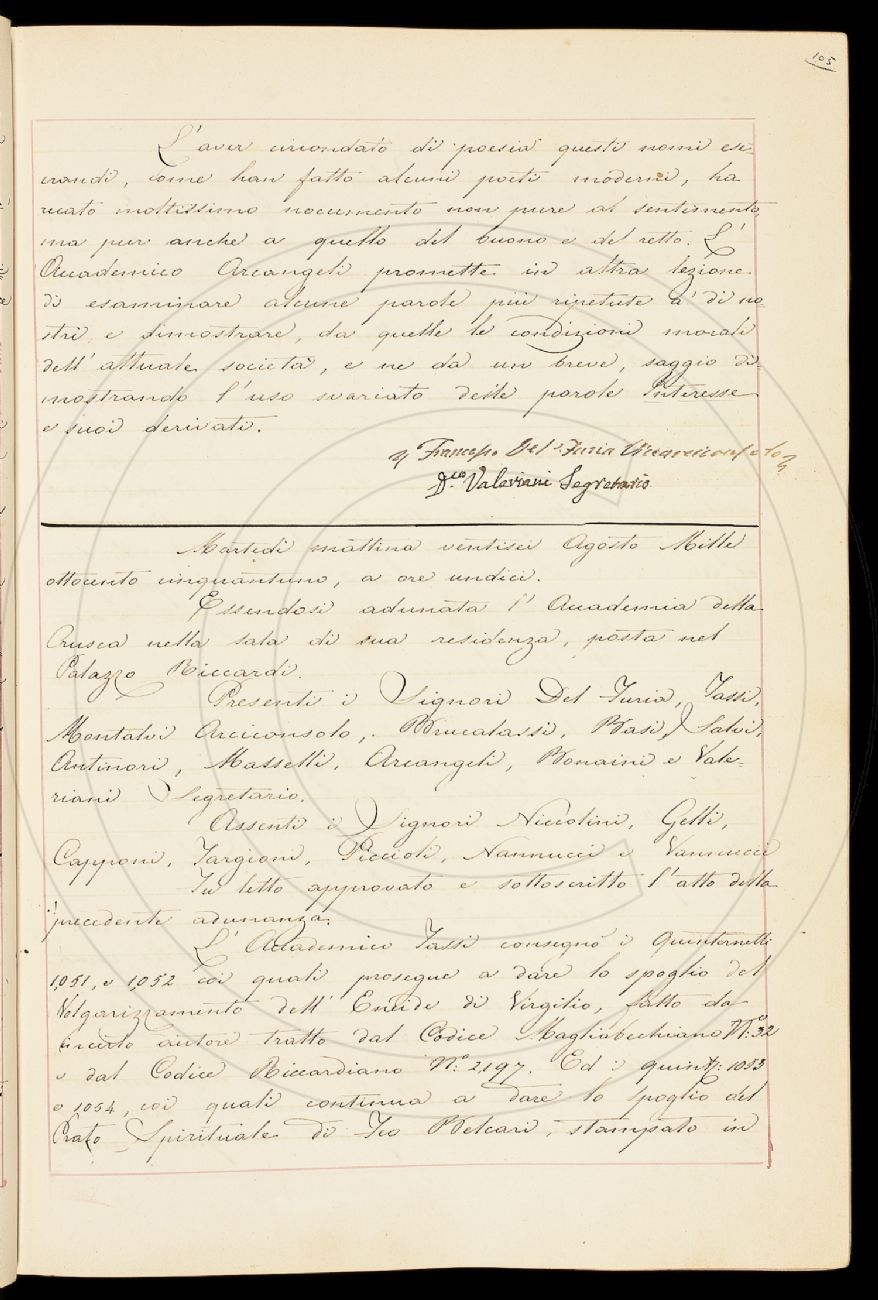 105
L'aver circondato di poesia questi nomi ese-
crandi, come han fatto alcuni poeti moderni, ha
recato moltissimo nocumento non pure al sentimento,
ma pur anche a quello del buono e del retto. L'
Accademico Arcangeli promette in altra lezione
di esaminare alcune parole più ripetute a' dì no-
stri, e dimostrare, da quelle le condizioni morali
dell'attuale società, e ne da un breve, saggio di-
mostrando l'uso svariato delle parole Interesse
e suoi derivati.
Francesco Del Furia Vicearciconsolo
Dco. Valeriani Segretario
Martedì mattina ventisei Agosto Mille
ottocento cinquantuno, a ore undici.
Essendosi adunata l'Accademia della
Crusca nella sala di sua residenza, posta nel
Palazzo Riccardi.
Presenti i Signori Del Furia, Tassi,
Montalvi Arciconsolo, Brucalassi, Basi, Salvi,
Antinori, Masselli, Arcangeli, Bonaini e Vale-
riani Segretario.
Assenti i Signori Niccolini, Gelli,
Capponi, Targioni, Piccioli, Nannucci e Vannucci
Fu letto approvato e sottoscritto l'atto della
precedente adunanza.
L'Accademico Tassi consegnò i Quinternetti
1,051, e 1,052 coi quali prosegue a dare lo spoglio del
Volgarizzamento dell'Eneide di Virgilio, fatto da
incerto autore tratto dal Codice Magliabechiano No: 32
e dal Codice Riccardiano No: 2197. Ed i quint: 1053
e 1054, coi quali continua a dare lo spoglio del
Prato Spirituale di Feo Belcari, stampato in